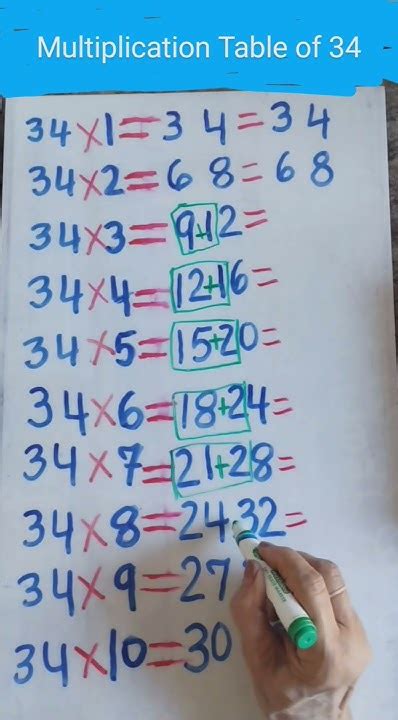 Multiplication Table of 34
34×1=3 4=34
34×2=6 8=68
34×3=9+12=
34×4=12+16=
34×5=15+20=
34×6=18+24=
34×7=21+28=
34×8=24 32=
34×9=27
34×10=30